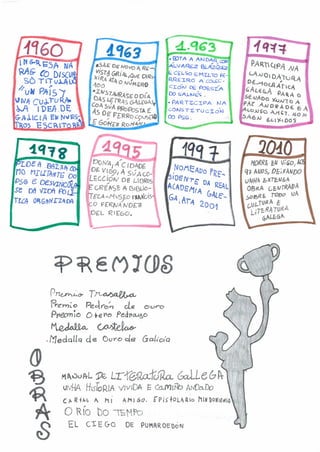 1960
INGRESA NA
RAG CO DISCUR
SO TITULADO
"UN PAÍS Y
UNA CULTURA
A IDEA DE
GALICIA EN NUES
TROS ESCRITORES
1963
SAE DE NOVO A RE-
VISTA GRIAL, QUE DIRI
XIRÁ ATA O NÚMERO
100
INSTAURASE O DÍA
DAS LETRAS GALEGAS,
COA SÚA PROPOSTA E
AS DE FERRO COUSELO
E GÓMEZ ROMÁN
1.963
BOTA A ANDAR, CON
ÁLVAREZ BLÁZQUEZ
E CELSO EMILIO FE-
RREIRO A COLEC-
CIÓN DE POESÍA
DO SALNÉS.
PARTICIPA NA
CONSTITUCIÓN
DO PSG.
1977
PARTICIPA NA
CANDIDATURA
DEMOCRÁTICA
GALEGA PARA O
SENADO XUNTO A
PAZ ANDRADE E A
ALONSO AMAT. NON
SAEN ELIXIDOS
1978
PIDE A BAIXA CO-
MO MILITANTE DO
PSG E DESVINCÚLA-
SE DA VIDA POLÍ-
TICA ORGANIZADA
1995
DONA, Á CIDADE
DE VIGO, A SÚA CO-
LECCIÓN DE LIBROS
E CRÉASE A BIBLIO-
TECA-MUSEO FRANCIS-
CO FERNÁNDEZ
DEL RIEGO.
1997
NOMEADO PRE-
SIDENTE DA REAL
ACADEMIA GALE-
GA, ATA 2001
2010
MORRE EN VIGO, AOS
97 ANOS, DEIXANDO
UNHA EXTENSA
OBRA CENTRADA
SOBRE TODO NA
CULTURA E
LITERATURA
GALEGA
PREMIOS
Premio Trasalba
Premio Pedrón de ouro
Premio Otero Pedrayo
Medalla Castelao
Medalla de Ouro de Galicia
OBRAS
MANUAL DE LITERATURA GALLEGA
UNHA HISTORIA VIVIDA E CAMIÑO ANDADO
CARTAS A MI AMIGO. EPISTOLARIO MINDONIENSE
O RÍO DO TEMPO
EL CIEGO DE PUMARDEDÓN